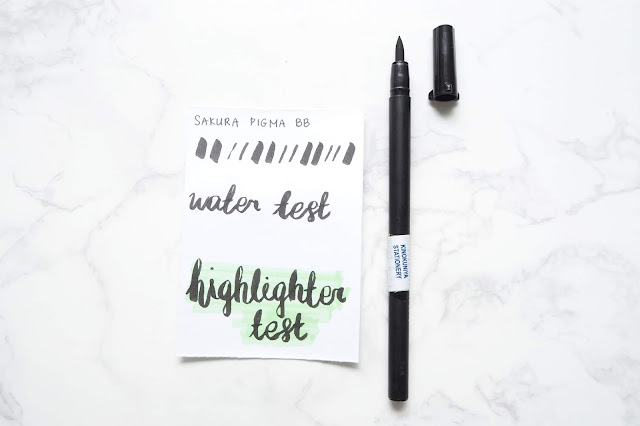 SAKURA PIGMA BB
water test
highlighter
test
KINOKUNIYA
STATIONERY